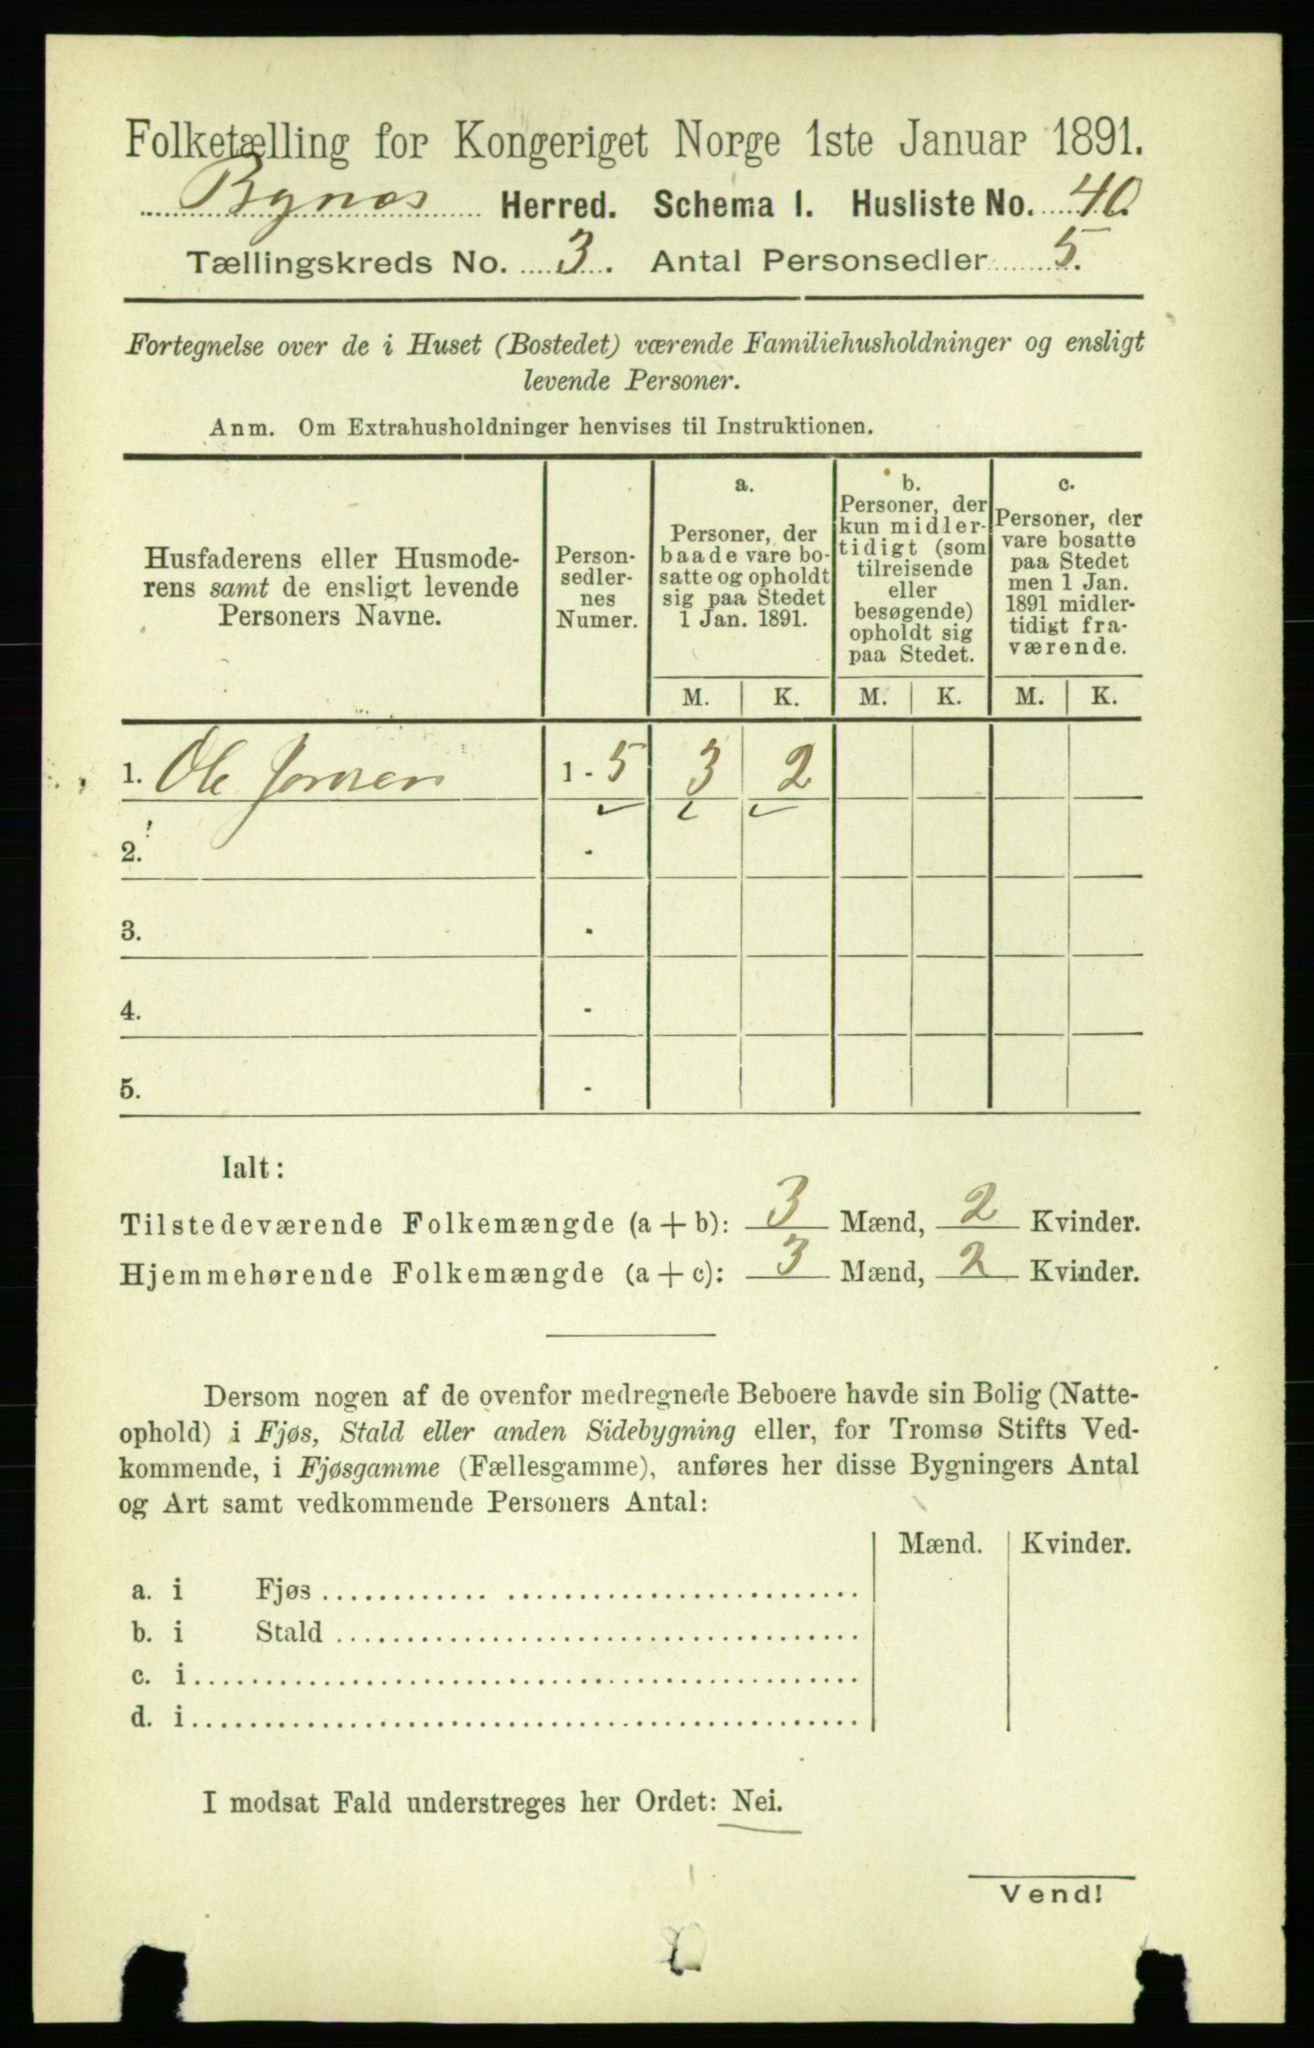 Folketælling for Kongeriget Norge 1ste Januar 1891.
Bynes Herred. Schema 1. Husliste No. 40.
Tællingskreds No. 3. Antal Personsedler 5.
Fortegnelse over de i Huset (Bostedet) værende Familiehusholdninger og ensligt
levende Personer.
Anm. Om Extrahusholdninger henvises til Instruktionen.
Husfaderens eller Husmode-
rens samt de ensligt levende
Personers Navne.
Person-
sedler-
nes
Numer.
a.
Personer, der
baade vare bo-
satte og opholdt
sig paa Stedet
1 Jan. 1891.
b.
Personer, der
kun midler-
tidigt (som
tilreisende
eller
besøgende)
opholdt sig
paa Stedet.
c.
Personer, der
vare bosatte
paa Stedet
men 1 Jan.
1891 midler-
tidigt fra-
værende.
M. K. M. K. M. K.
1. Ole 1 - 5 3 2
2. -
3. -
4. -
5. -
Ialt:
Tilstedeværende Folkemængde (a + b): 3 Mænd, 2 Kvinder.
Hjemmehørende Folkemængde (a + c): 3 Mænd, 2 Kvinder.
Dersom nogen af de ovenfor medregnede Beboere havde sin Bolig (Natte-
ophold) i Fjøs, Stald eller anden Sidebygning eller, for Tromsø Stifts Ved-
kommende, i Fjøsgamme (Fællesgamme), anføres her disse Bygningers Antal
og Art samt vedkommende Personers Antal:
Mænd. Kvinder.
a. i Fjøs
b. i Stald
c. i
d. i
I modsat Fald understreges her Ordet: Nei.
Vend!